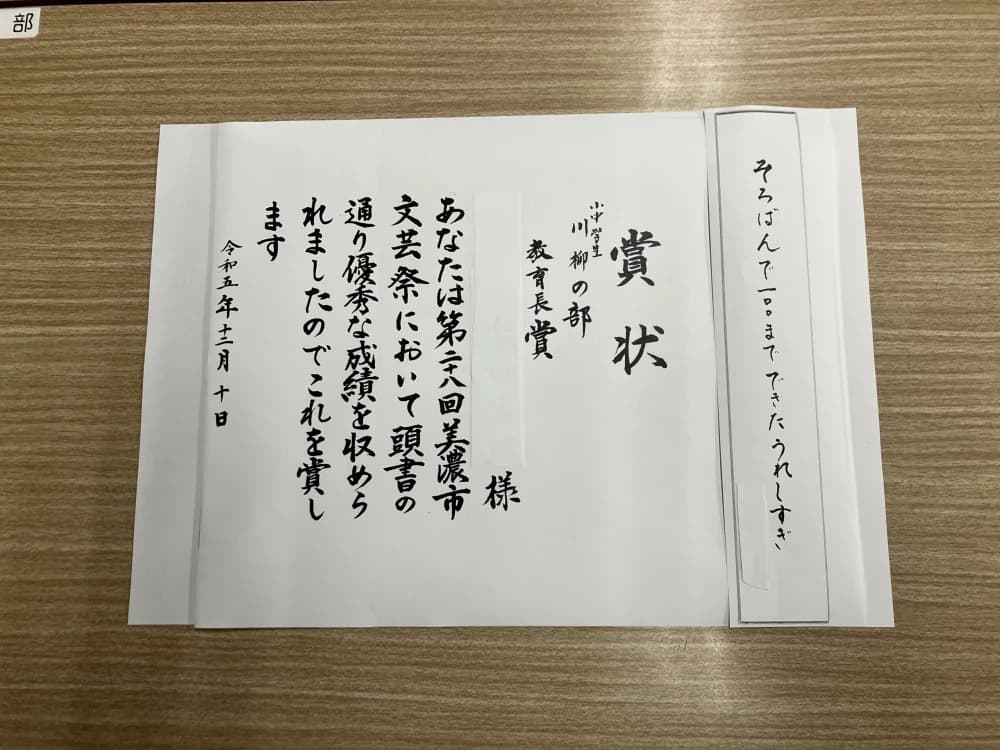 部
そろばんで一〇〇まできたうれしすぎ
賞状
小中学生
川柳の部
教育長賞
様
あなたは第二十八回美濃市
文芸祭において頭書の
通り優秀な成績を収めら
れましたのでこれを賞し
ます
令和五年十二月十日